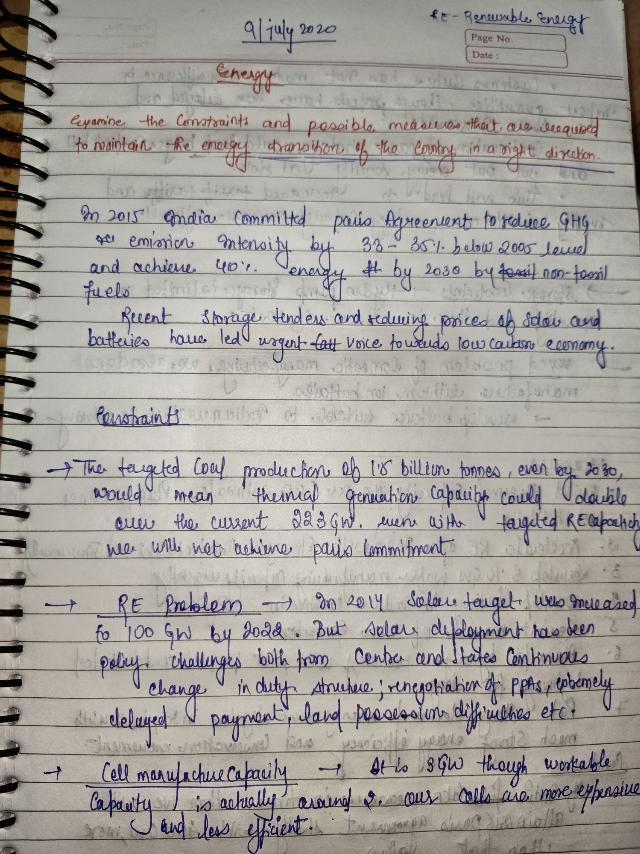 RE - Renewable Energy
9/july 2020
Page No.
Date :
Energy
Examine the Constraints and possible measures that are required
to maintain the energy transition of the Country in a right direction.
In 2015 India Committed paris Agreement to reduce GHG
emission Intensity by 33 - 35% below 2005 level
and achieve 40% energy by 2030 by fossil non-fossil
fuels
Recent Storage tenders and reducing prices of Solar and
batteries have led urgent voice towards low carbon economy.
Constraints
→ The targeted Coal production of 1.5 billion tonnes, even by 2030,
would mean thermal generation capacity could double
over the current 223 GW. even with targeted RE Capacity
we will not achieve paris Commitment
→ RE Problem → In 2014 Solar target was increased
to 100 GW by 2022. But solar deployment has been
policy challenges both from Centre and States Continuous
change in duty structure, renegotiation of PPAs, extremely
delayed payment, land possession difficulties etc.
→ Cell manufacture Capacity → It is 3 GW though workable
Capacity is actually around 2. our Cells are more expensive
and less efficient.